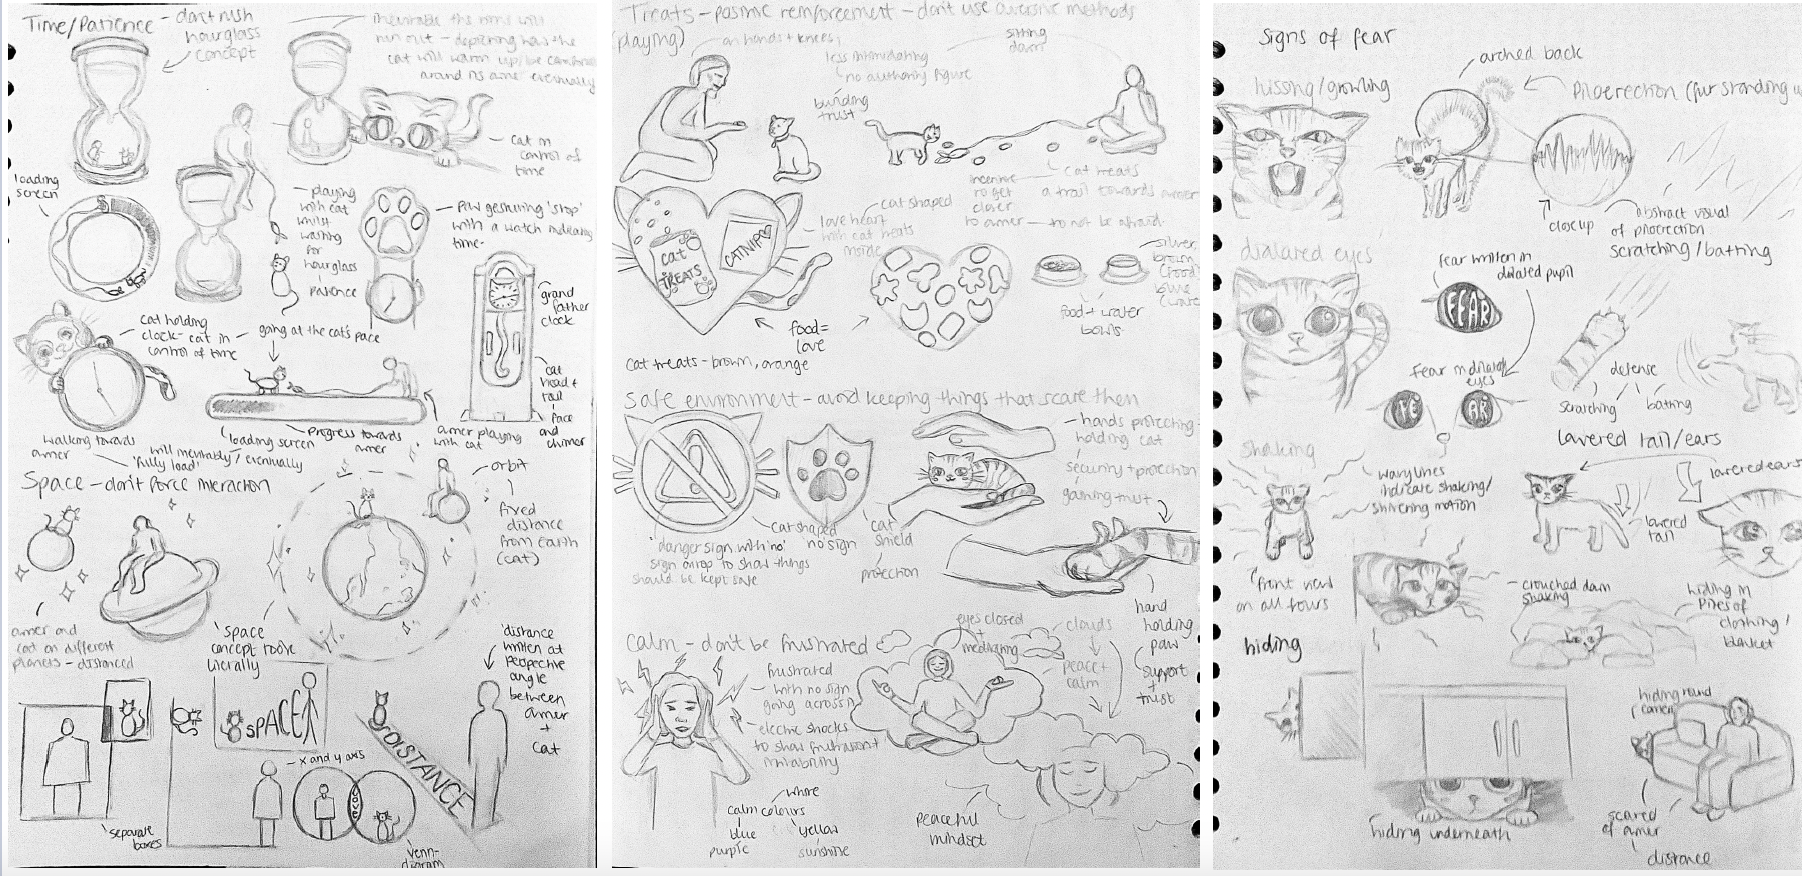 Time/Patience - don't rush
hourglass
concept
inevitable the time will
run out - depicting how the
cat will warm up/be comfortable
around its owner eventually
cat in
control of
time
loading
screen
playing
with cat
whilst
waiting
for
hourglass
patience
Paw gesturing 'stop'
with a watch indicating
time.
grand
father
clock
cat holding
clock - cat in
control of time
going at the cat's pace
cat
head +
tail
face
and
chimer
walking towards
owner
loading screen
will inevitably/eventually
'fully load'
Progress towards
owner
owner playing
with cat
Space - don't force interaction
orbit
fixed
distance
from earth
(cat)
owner and
cat on different
planets - distanced
'space'
concept taken
literally
'distance'
written at
perspective
angle
between
owner
+
cat
SPACE
DISTANCE
x and y axis
LOVE
separate
boxes
venn-
diagram
Treats - positive reinforcement - don't use aversive methods
(playing)
on hands + knees
less intimidating
no authority figure
sitting
down
building
trust
cat treats
a trail towards owner
incentive
to get
closer
to owner - to not be afraid.
cat shaped
love heart
with cat treats
inside
cat
TREATS
CATNIP
food =
love
silver,
brown
(food)
blue
(water)
food + water
bowls
cat treats - brown, orange
Safe environment - avoid keeping things that scare them
hands protecting
holding cat
security + protection
gaining trust
cat shaped
no sign
'danger sign with 'no'
sign on top to show things
should be kept safe
cat
shield
protection
hand
holding
paw
support
+
trust
Calm - don't be frustrated
eyes closed
+
meditating
clouds
peace +
calm
frustrated
with no sign
going across it
electric shocks
to show frustration +
irritability
white
calm colours
blue
purple
yellow
sunshine
peaceful
mindset
Signs of fear
hissing/growling
arched back
Piloerection (fur standing up
close up
abstract visual
of piloerection
scratching/batting
dialated eyes
fear written in
dialated pupil
FEAR
Fear in dilated
eyes
FE
AR
defense
scratching
batting
shaking
wavy lines
indicate shaking/
shivering motion
lowered tail/ears
lowered ears
lowered
tail
front view
on all fours
crouched down
shaking
hiding in
piles of
clothing/
blanket
hiding
hiding round
corner
hiding underneath
scared
of owner
distance